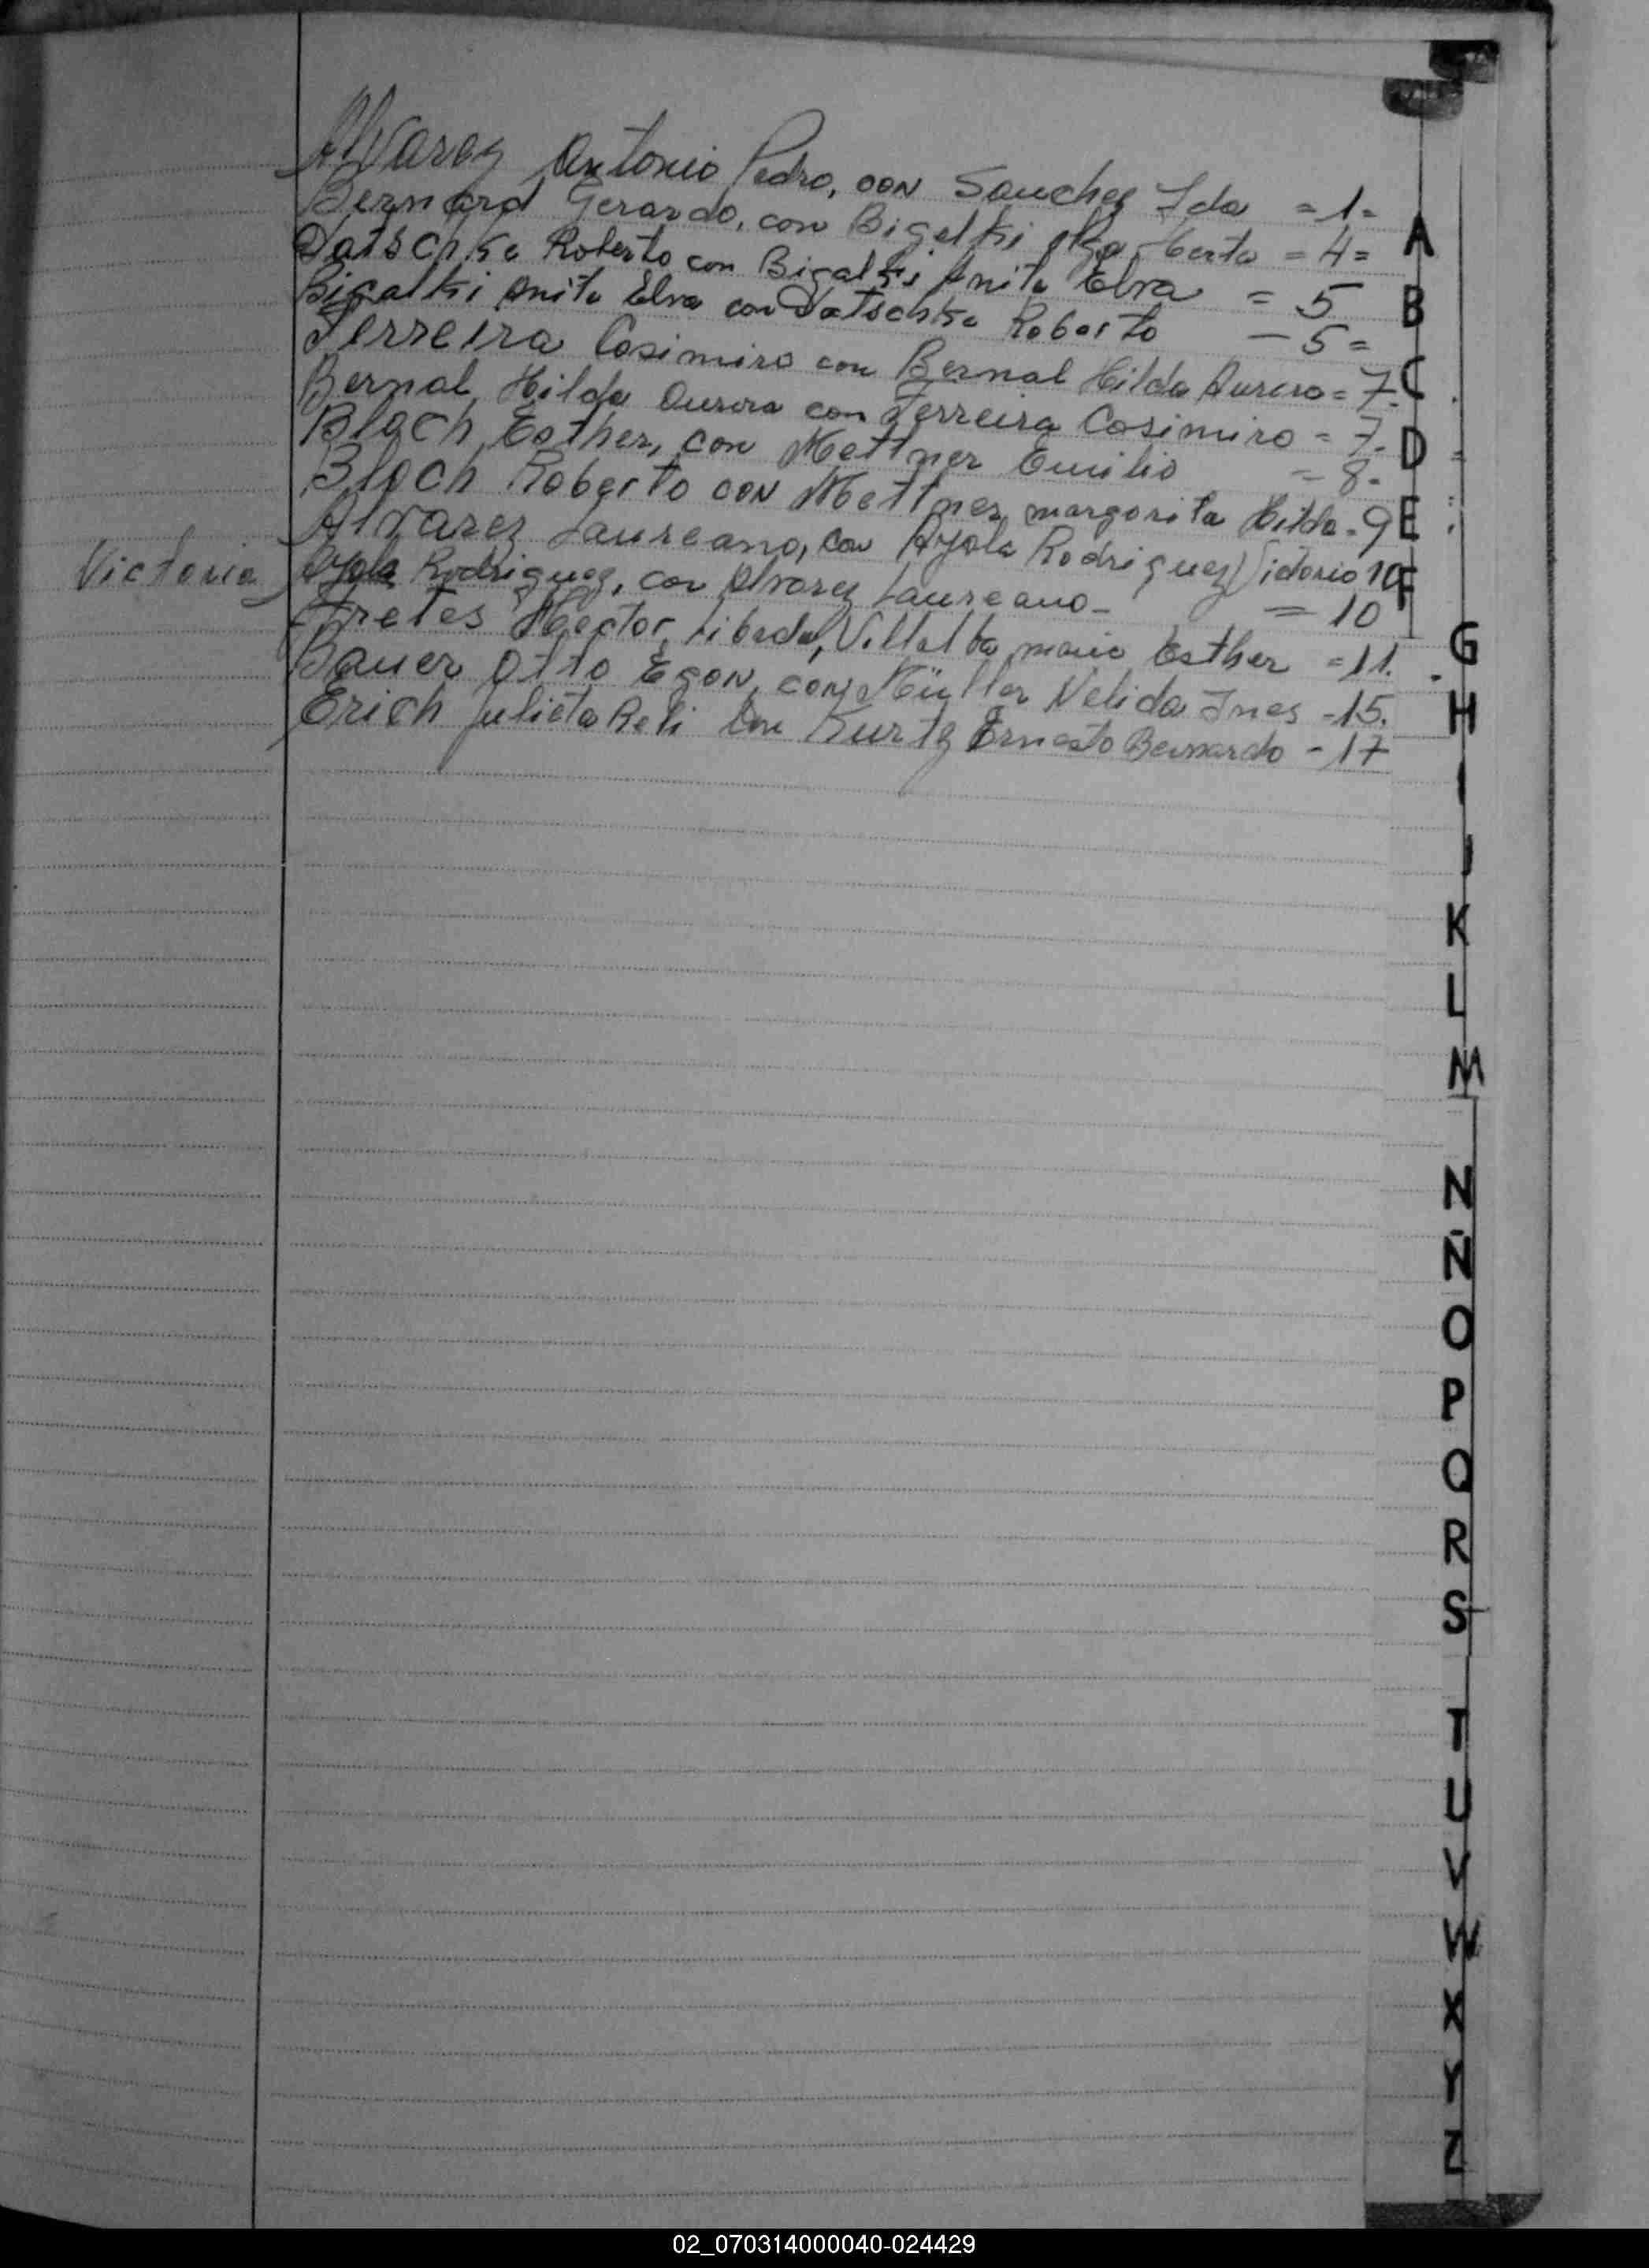 Alvarez Antonio Pedro, con Sanchez Ida =1=
Bernard Gerardo, con Bigalki Olga Berta =4=
Datschke Roberto con Bigalki Anita Elva = 5
Bigalki Anita Elva con Datschke Roberto - 5=
Ferreira Casimiro con Bernal Hilda Aurora = 7.
Bernal Hilda Aurora con Ferreira Casimiro = 7.
Bloch Esther, con Mettner Emilio = 8.
Bloch Roberto con Mettner margarita Hilda = 9
Alvarez Laureano, con Ayala Rodriguez Victoria 10
Victoria Ayala Rodriguez, con Alvarez Laureano- = 10
Fretes Hector, Villalba maria Esther =11.
Bauer Otto Egon, con Müller Nelida Ines -15.
Erich Julieta con Kurtz Ernesto Bernardo - 17
A
B
C
D
E
F
G
H
I
J
K
L
M
N
Ñ
O
P
Q
R
S
T
U
V
W
X
Y
Z
02_070314000040-024429